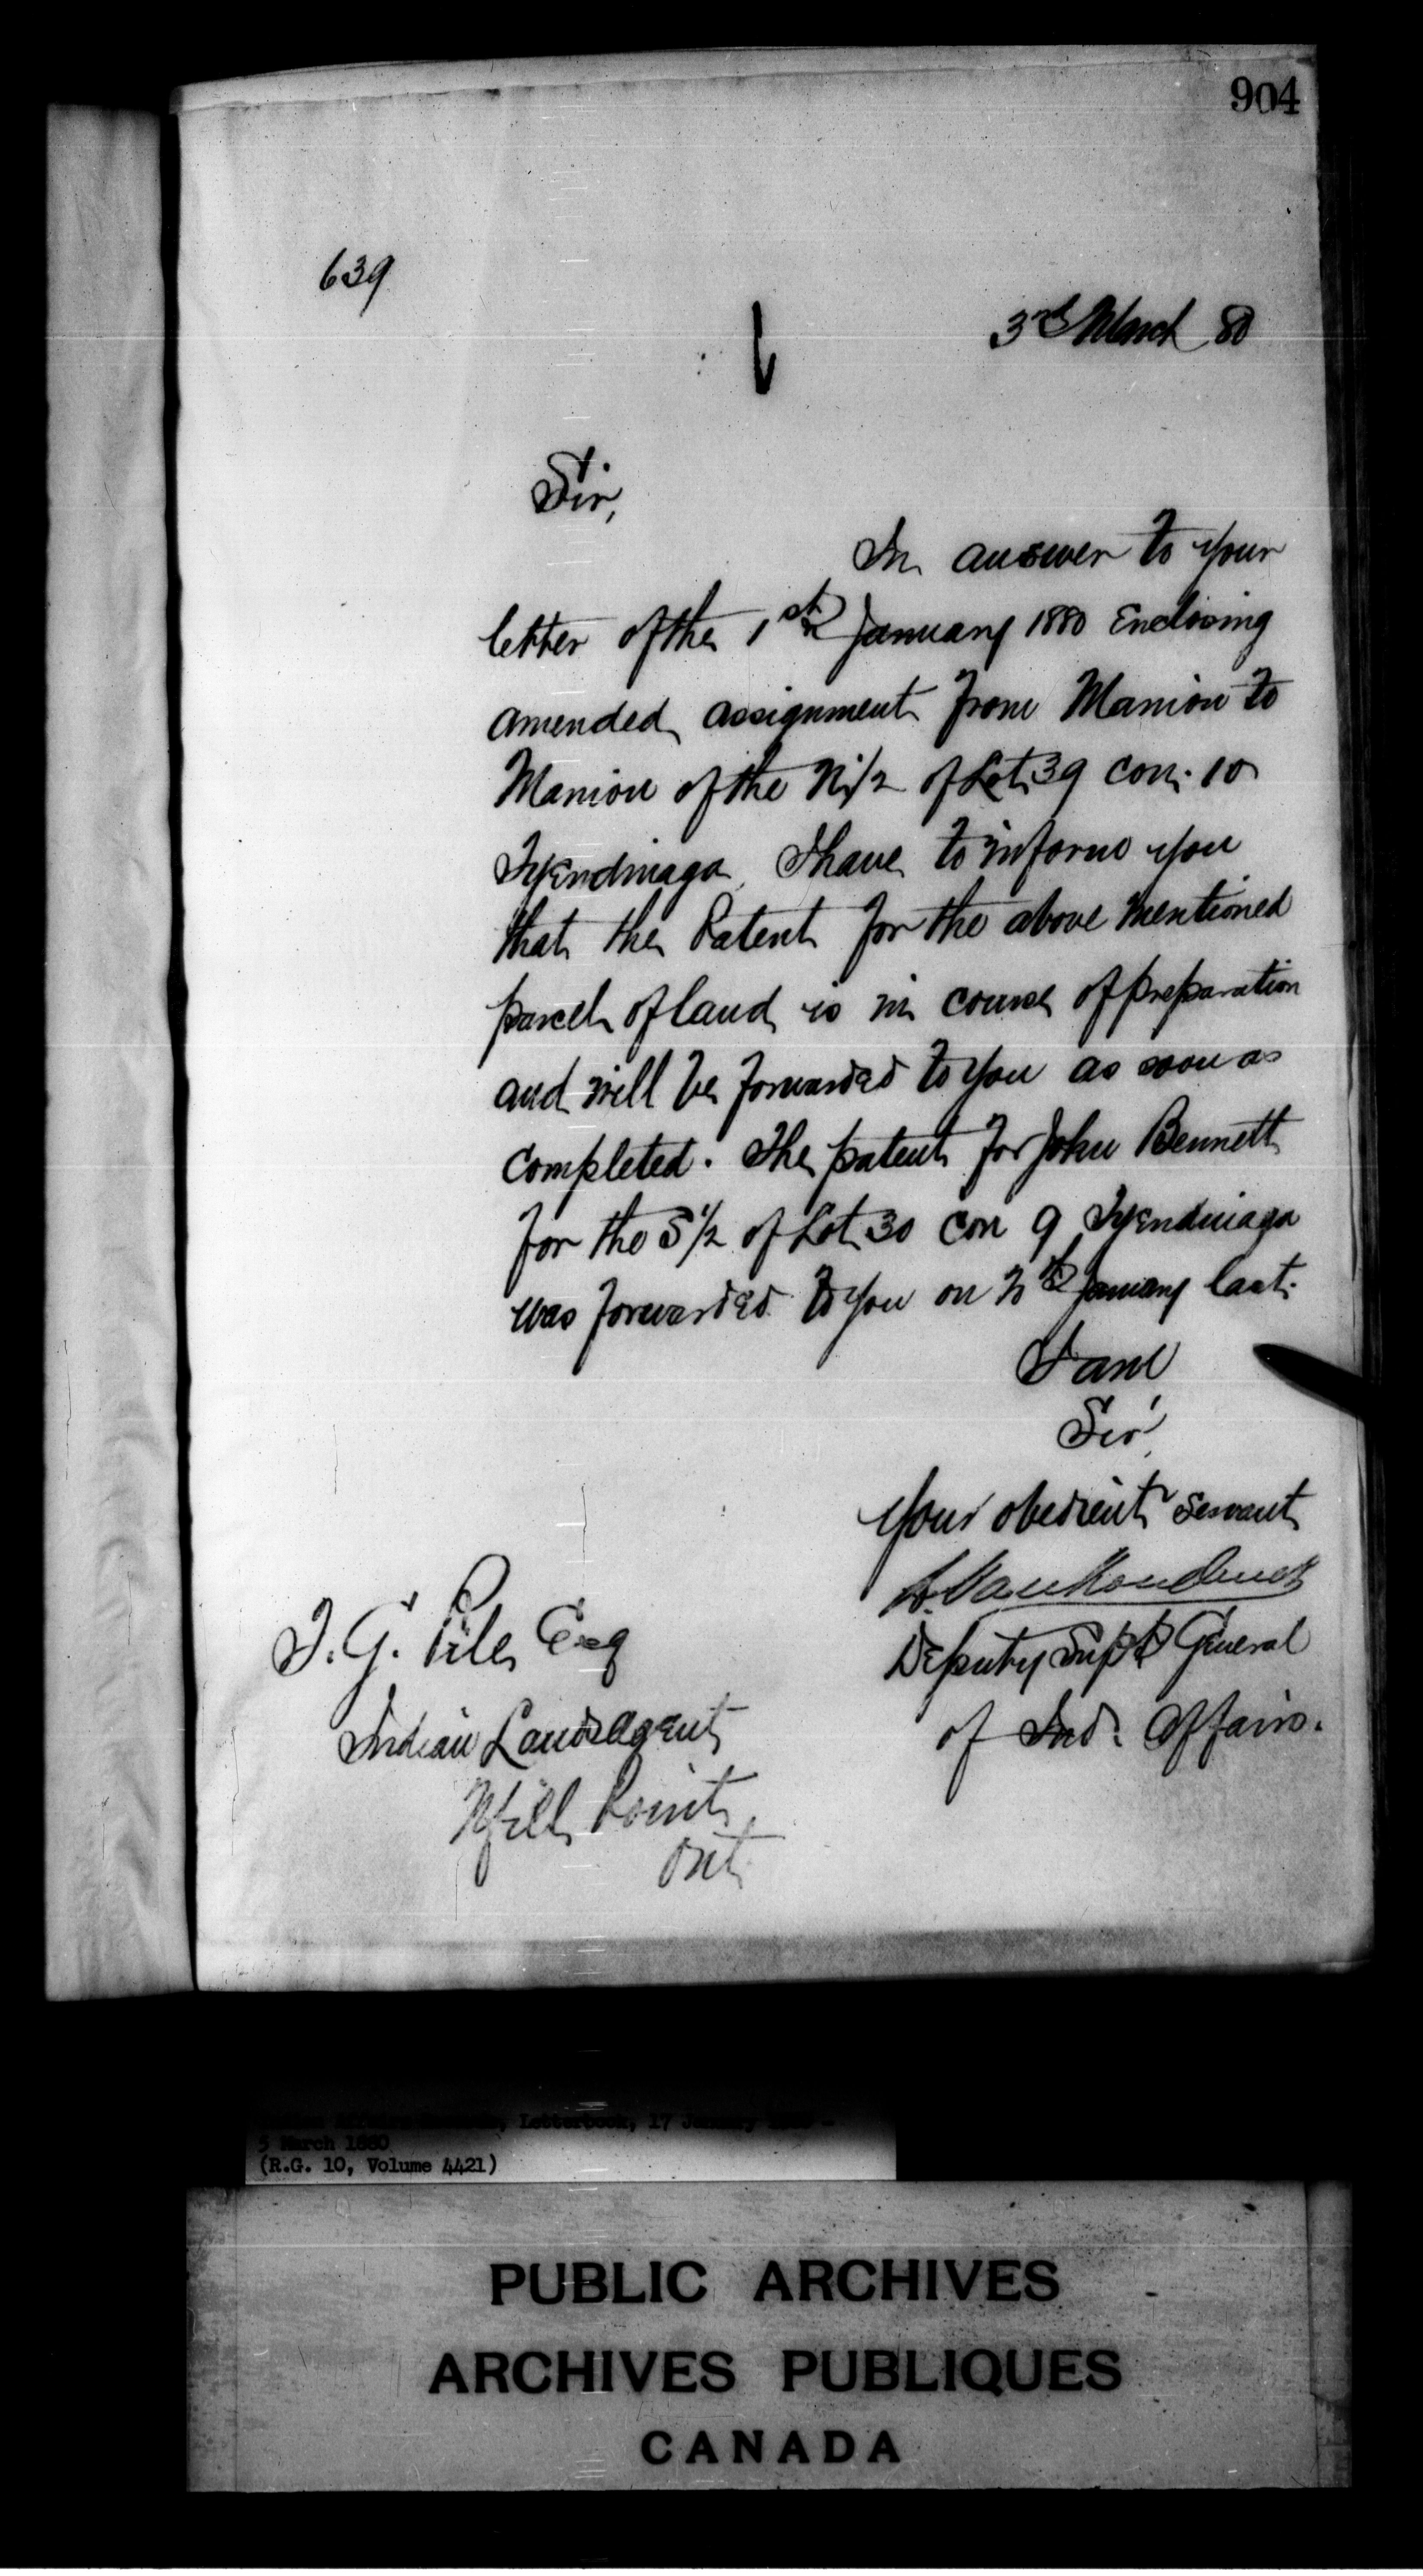 904
639
3rd March 80
Sir,
In answer to your
letter of the 1st January 1880 Enclosing
amended assignment from Manion to
Manion of the N½ of Lot 39 con. 10
Tyendinaga, I have to inform you
that the Patent for the above mentioned
parcel of land is in course of preparation
and will be forwarded to you as soon as
completed. The patent for John Bennett
for the S½ of Lot 30 Con 9 Tyendinaga
was forwarded to you on January last.
I am
Sir,
Your obedient Servant
L. Vankoughnet
Deputy Supt General
of Ind. Affairs.
T. G. Pile Esq
Indian Lands Agent
Mill Point,
Ont.
Letterbook, 17 January
5 March 1880
(R.G. 10, Volume 4421)
PUBLIC ARCHIVES
ARCHIVES PUBLIQUES
CANADA